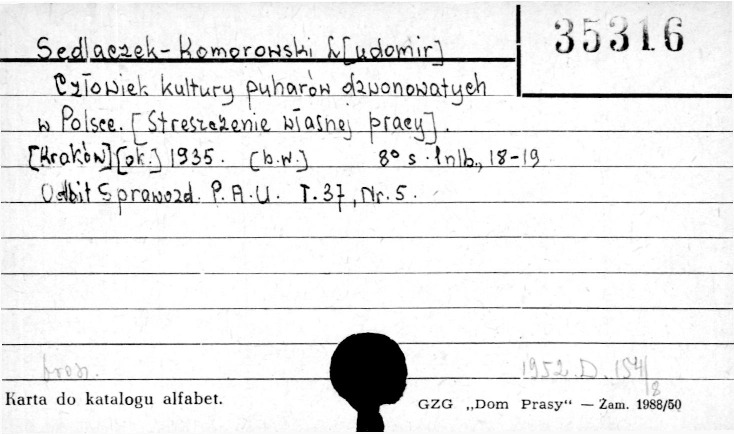 35316
Sedlaczek-Komorowski L[udomir]
Człowiek kultury puharów dzwonowatych
w Polsce. [Streszczenie własnej pracy].
[Kraków] [ok.] 1935. (b.w.) 8° s. 1nlb., 18-19
Odbit Sprawozd. P.A.U. T.37, Nr.5.
1952.D.154/8
Karta do katalogu alfabet.
GZG „Dom Prasy" — Zam. 1988/50